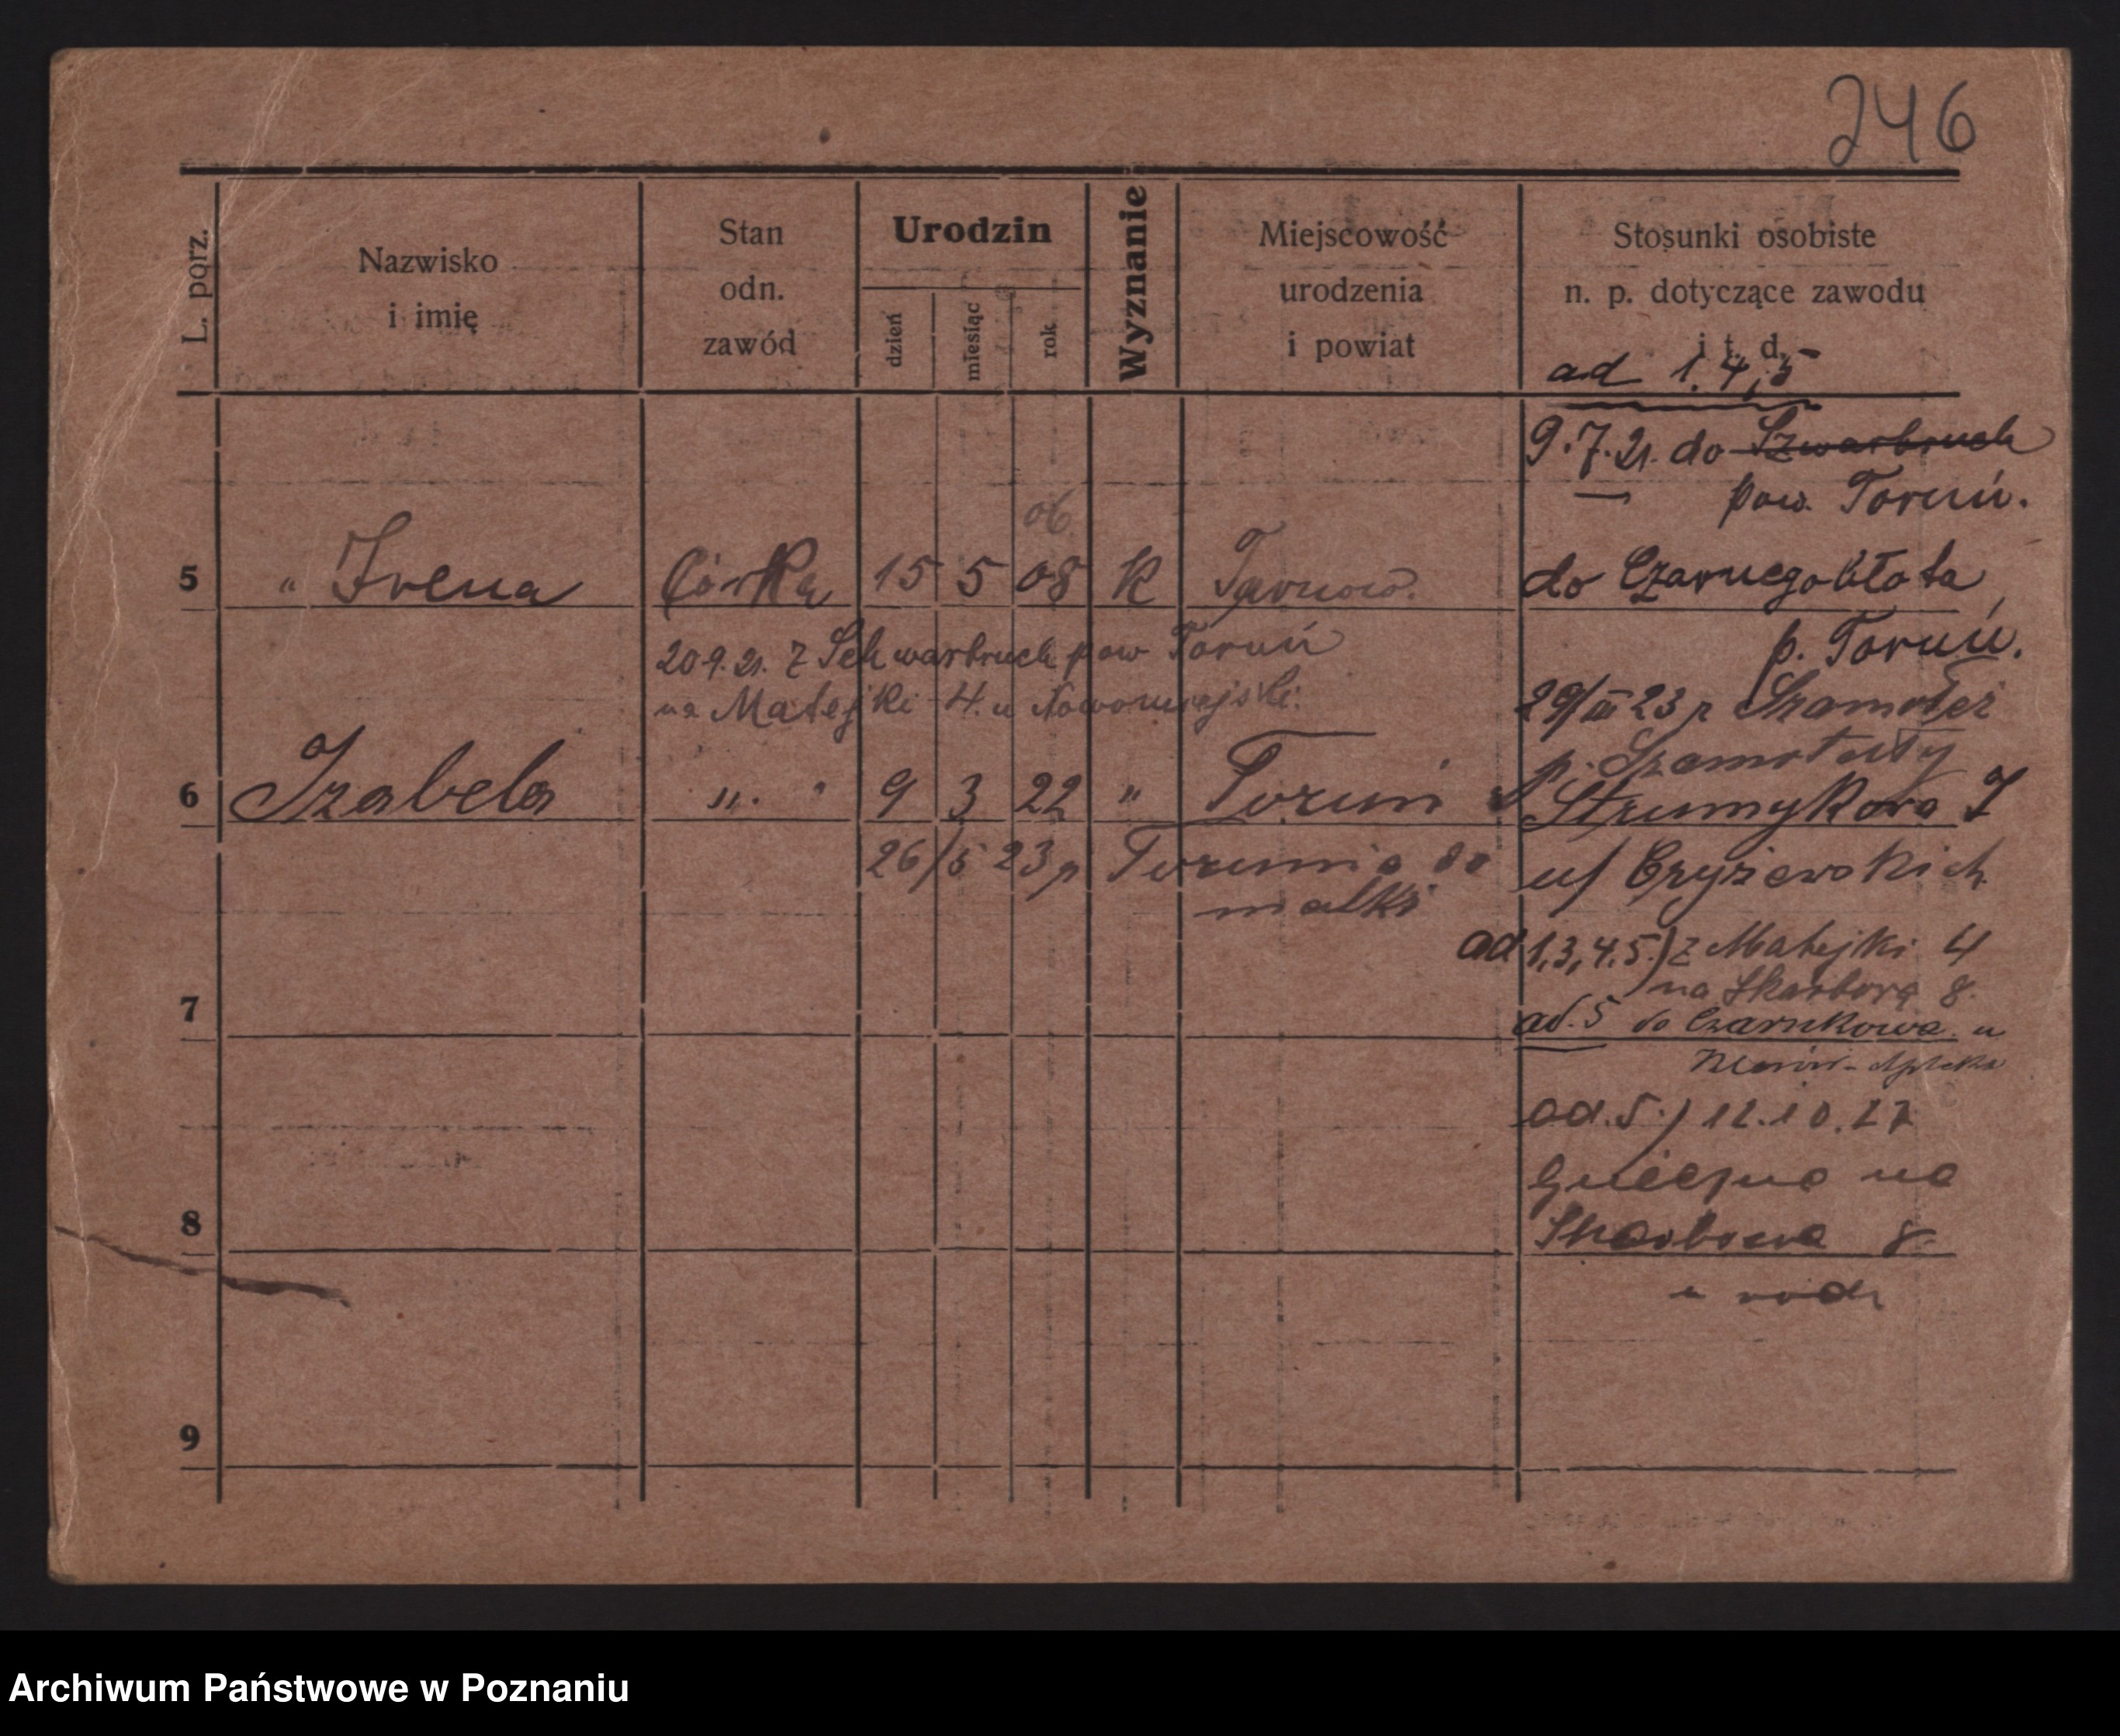 246
L. porz.
Nazwisko
i imię
Stan
odn.
zawód
Urodzin
dzień
miesiąc
rok
Wyznanie
Miejscowość
urodzenia
i powiat
Stosunki osobiste
n. p. dotyczące zawodu
i t. d.
ad 1.4,5
9.7.21. do Szwarbruch
pow. Toruń.
06
5 " Irena Córka 15 5 08 K Tarnow. do Czarnegobłota,
p. Toruń.
20.9.21. z Schwarbruch pow Toruń
na Matejki 4. u
29/III 23 z
p. Szamotuły
6 Izabela " " 9 3 22 " Toruń Strumykowa 7
26/5 23 z Torunia do
matki
u/ Czyżewskich
ad 1,3,4.5.) z Matejki 4
na Skarbową 8.
7
ad. 5 do Czarnkowa. u
Apteka
ad. 5.) 12.10.27
Gniezna na
8 Skarbowa 8
u rodz
9
Archiwum Państwowe w Poznaniu